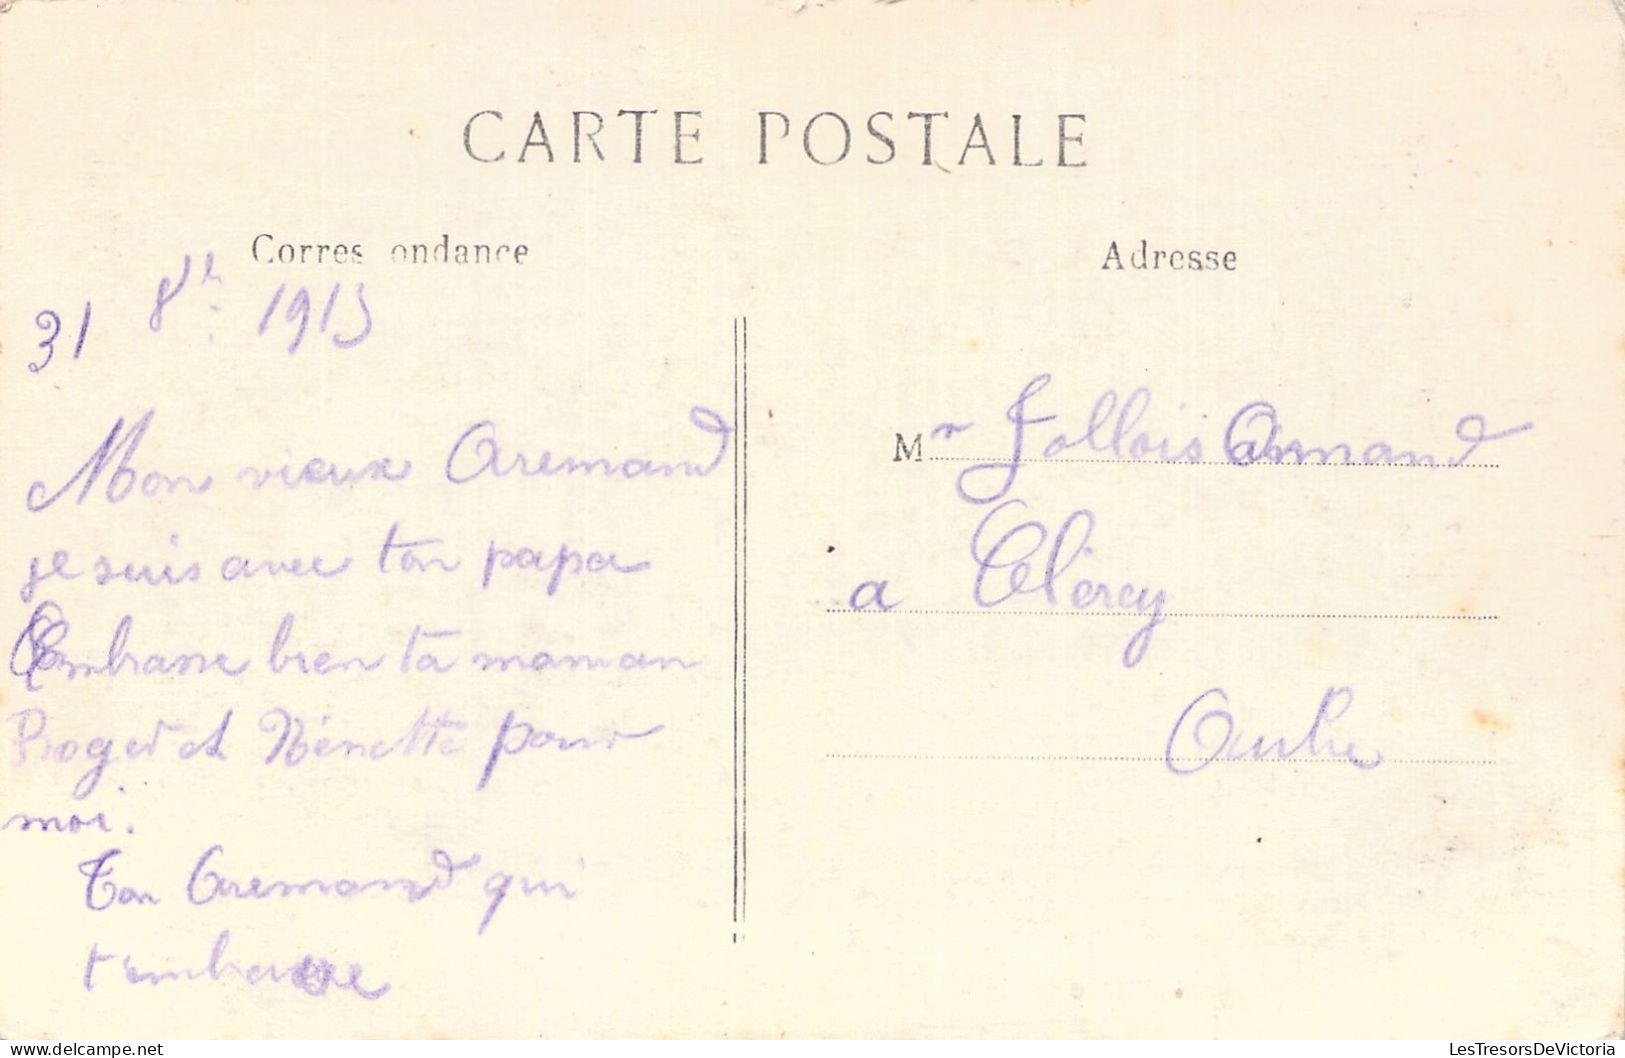 CARTE POSTALE
Corres ondance
Adresse
31 8bre 1915
Mon vieux Aremand
je suis avec ton papa
Embrasse bien ta maman
Roger et Nénette pour
moi.
Ton Aremand qui
t'embrasse
Mr Jollois Armand
a Clérey
Aube
LesTresorsDeVictoria